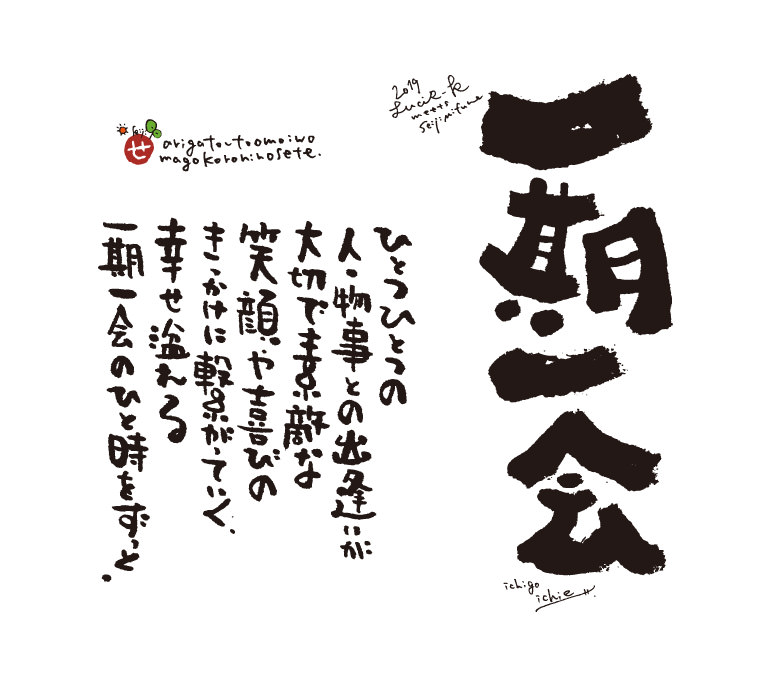 一期一会
ichigo
ichie
2019
Lucie-K
meets
seiji mifune
ひとつひとつの
人・物事との出逢いが
大切で素敵な
笑顔や喜びの
きっかけに繋がっていく、
幸せ溢れる
一期一会のひと時をずっと.
せ
arigato-toomoiwo
magokoroninosete.